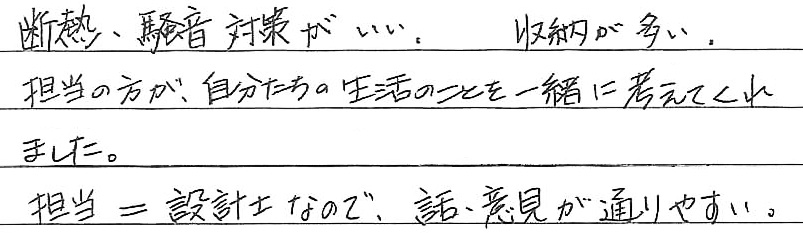 断熱、騒音対策がいい。　収納が多い。
担当の方が、自分たちの生活のことを一緒に考えてくれ
ました。
担当＝設計士なので、話、意見が通りやすい。